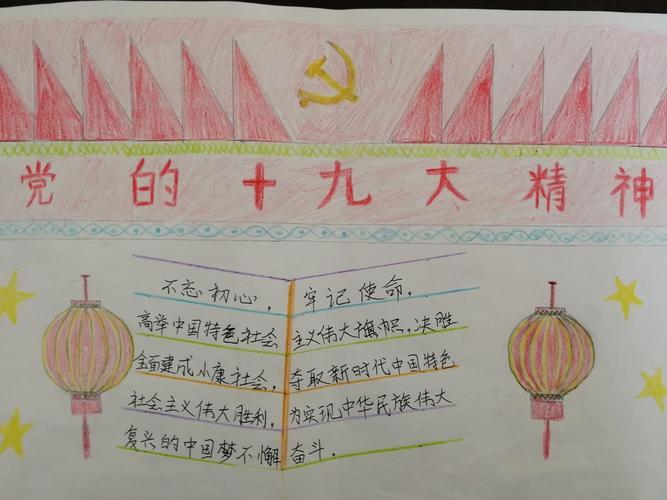 党的十九大精神
不忘初心，牢记使命，
高举中国特色社会主义伟大旗帜，决胜
全面建成小康社会，夺取新时代中国特色
社会主义伟大胜利，为实现中华民族伟大
复兴的中国梦不懈奋斗．